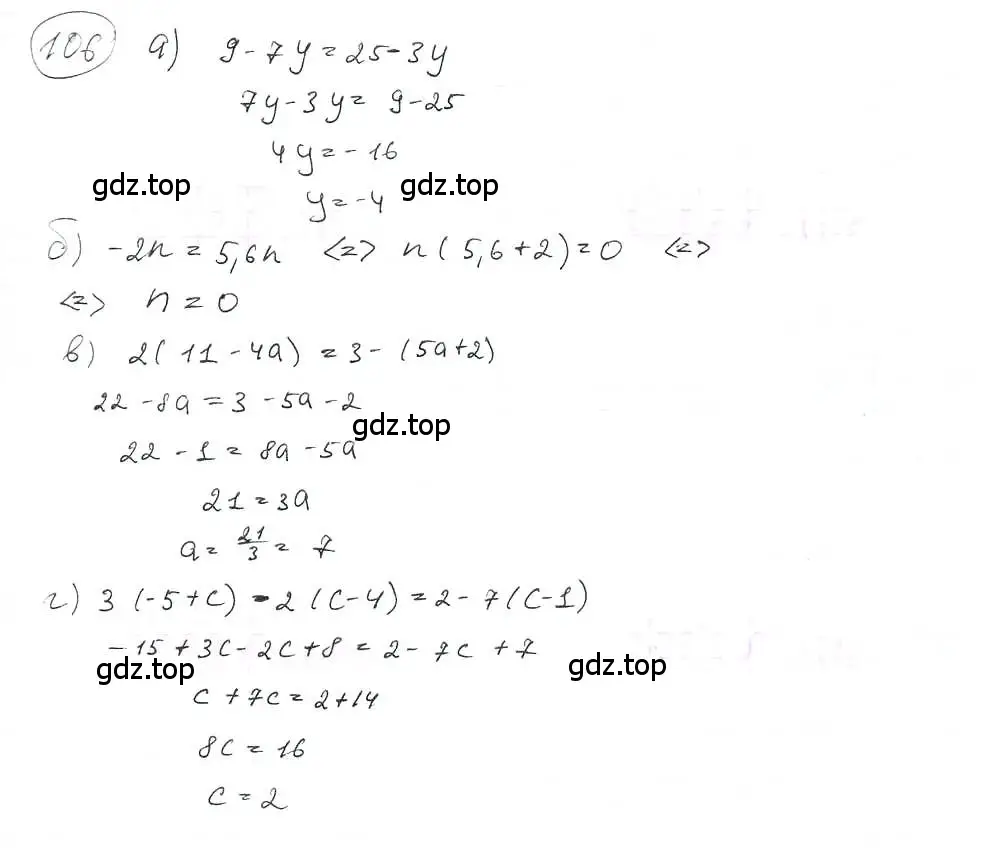 106 а) 9 - 7y = 25 - 3y
7y - 3y = 9 - 25
4y = - 16
gdz.top y = -4 gdz.top
б) -2n = 5,6n <=> n(5,6 + 2) = 0 <=>
<=> n = 0
в) 2(11 - 4a) = 3 - (5a + 2)
22 - 8a = 3 - 5a - 2
gdz.top
22 - 1 = 8a - 5a
21 = 3a
a = 21/3 = 7
г) 3(-5 + c) - 2(c - 4) = 2 - 7(c - 1)
-15 + 3c - 2c + 8 = 2 - 7c + 7
gdz.top gdz.top
c + 7c = 2 + 14
8c = 16
c = 2